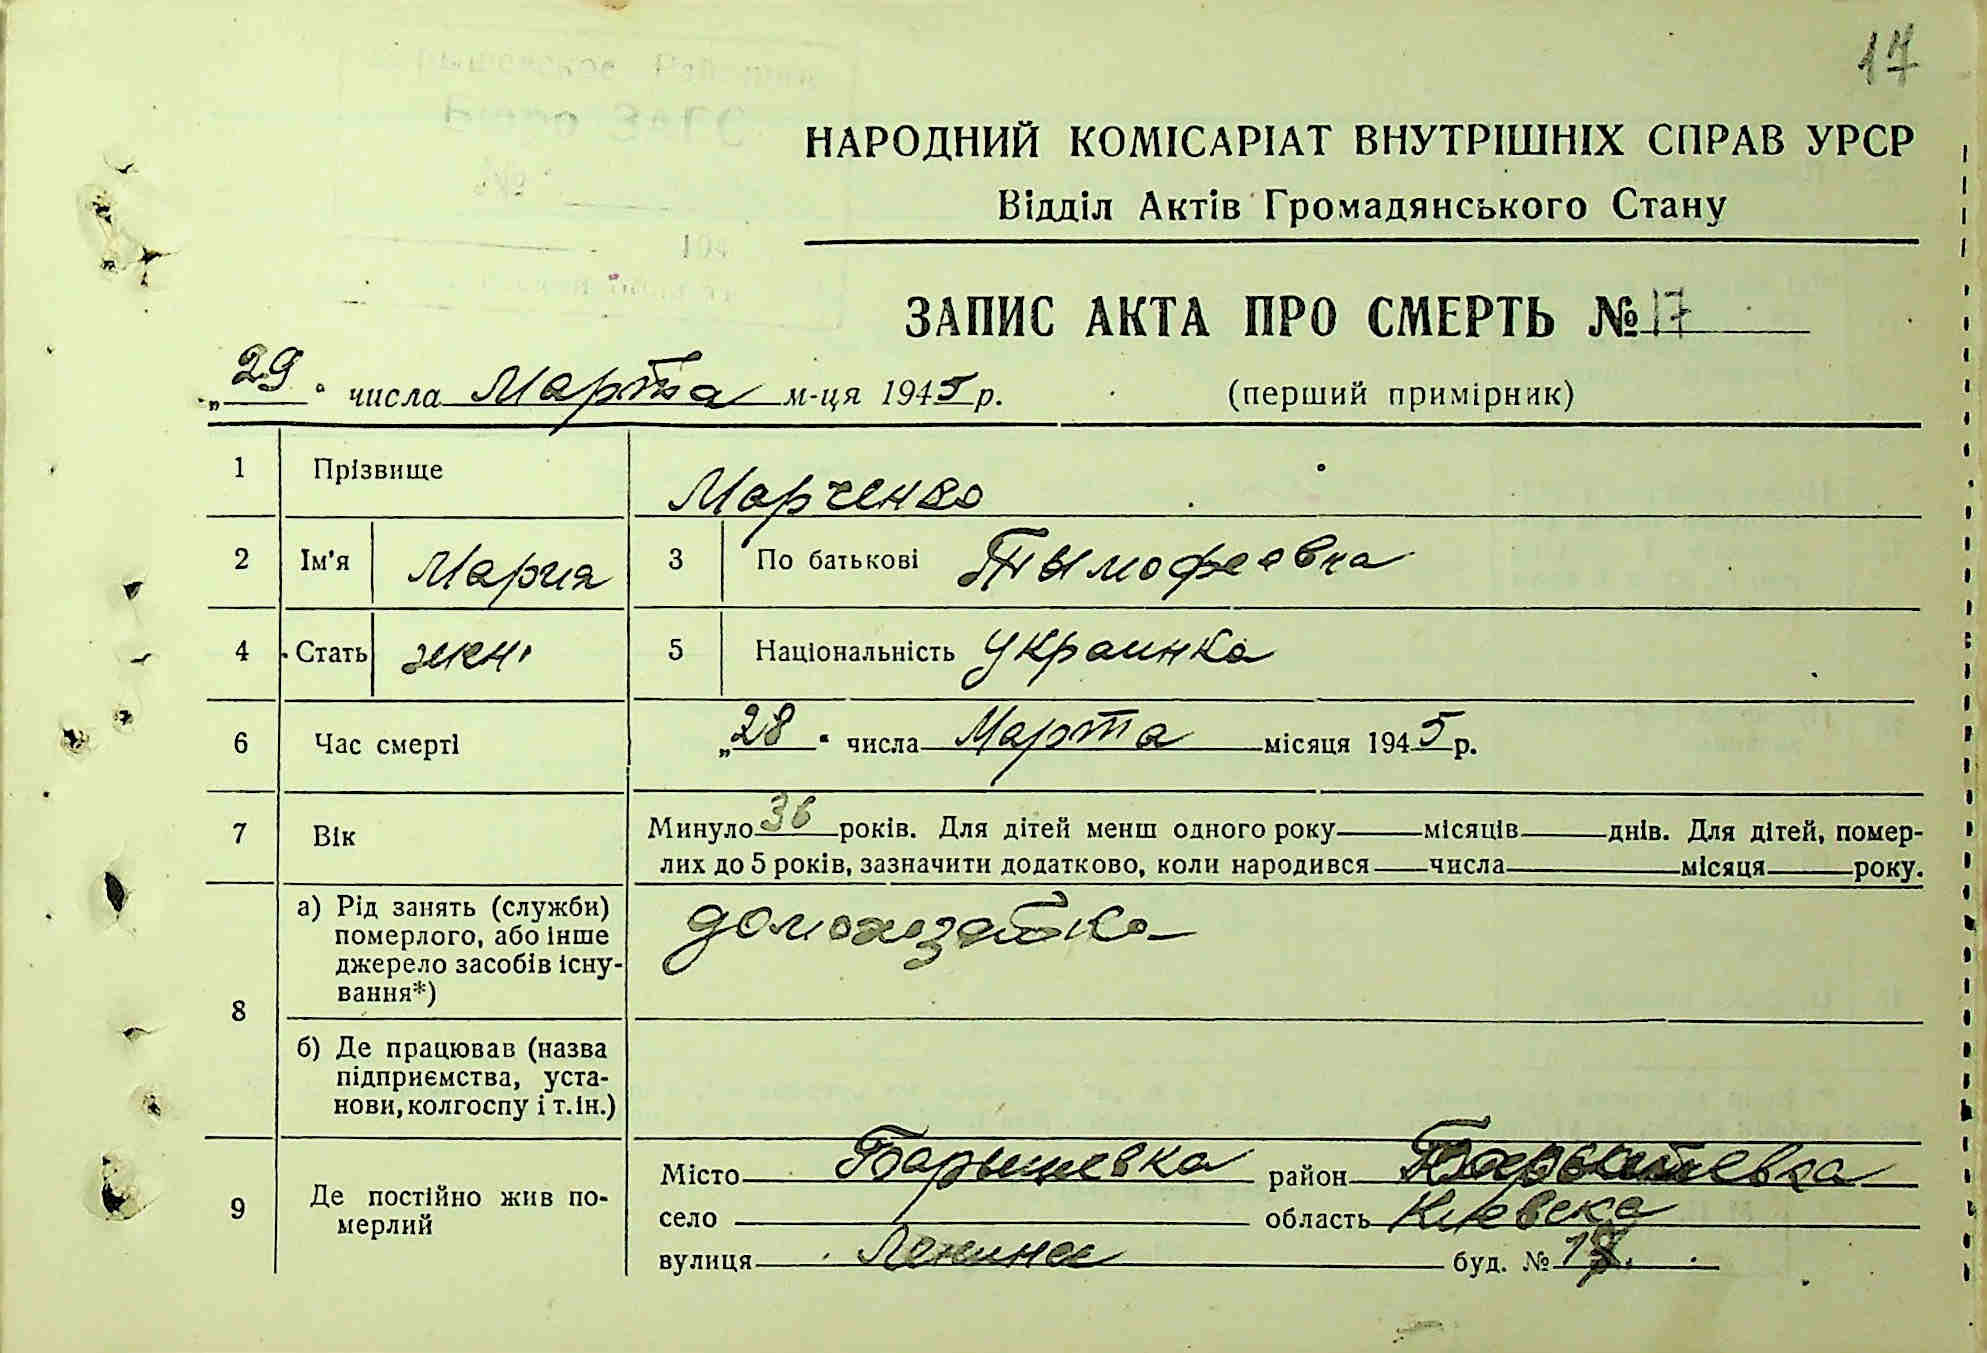 17
НАРОДНИЙ КОМІСАРІАТ ВНУТРІШНІХ СПРАВ УРСР
Відділ Актів Громадянського Стану
ЗАПИС АКТА ПРО СМЕРТЬ № 17
„29“ числа Марта м-ця 1945 р. (перший примірник)
1 Прізвище Марченко
2 Ім'я Мария 3 По батькові Тымофеевна
4 Стать жен. 5 Національність украинка
6 Час смерті „28“ числа Марта місяця 1945 р.
7 Вік Минуло 36 років. Для дітей менш одного року місяців днів. Для дітей, помер-
лих до 5 років, зазначити додатково, коли народився числа місяця року.
8 а) Рід занять (служби) померлого, або інше джерело засобів існу-вання*) домохозяйка
б) Де працював (назва підприємства, уста-нови, колгоспу і т. ін.)
9 Де постійно жив по-мерлий Місто Барышевка район Барышевка
село область Киевска
вулиця Ленина буд. №